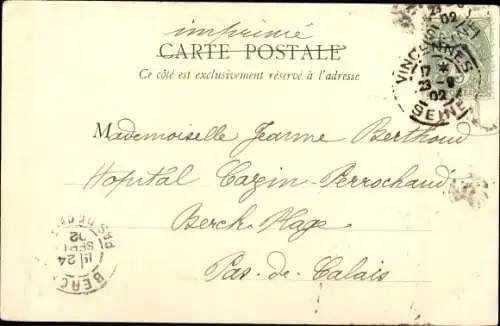 imprimé
CARTE POSTALE
Ce côté est exclusivement réservé à l'adresse
VINCENNES
17 * 9
23
02
SEINE
Mademoiselle Jeanne Berthoud
Hopital Cazin-Perrochaud
Berck Plage
Pas-de-Calais
15 24
SEPT
02